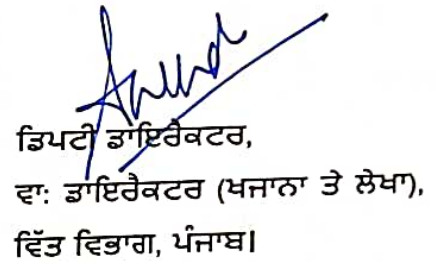 ਡਿਪਟੀ ਡਾਇਰੈਕਟਰ,
ਵਾ: ਡਾਇਰੈਕਟਰ (ਖਜਾਨਾ ਤੇ ਲੇਖਾ),
ਵਿੱਤ ਵਿਭਾਗ, ਪੰਜਾਬ।